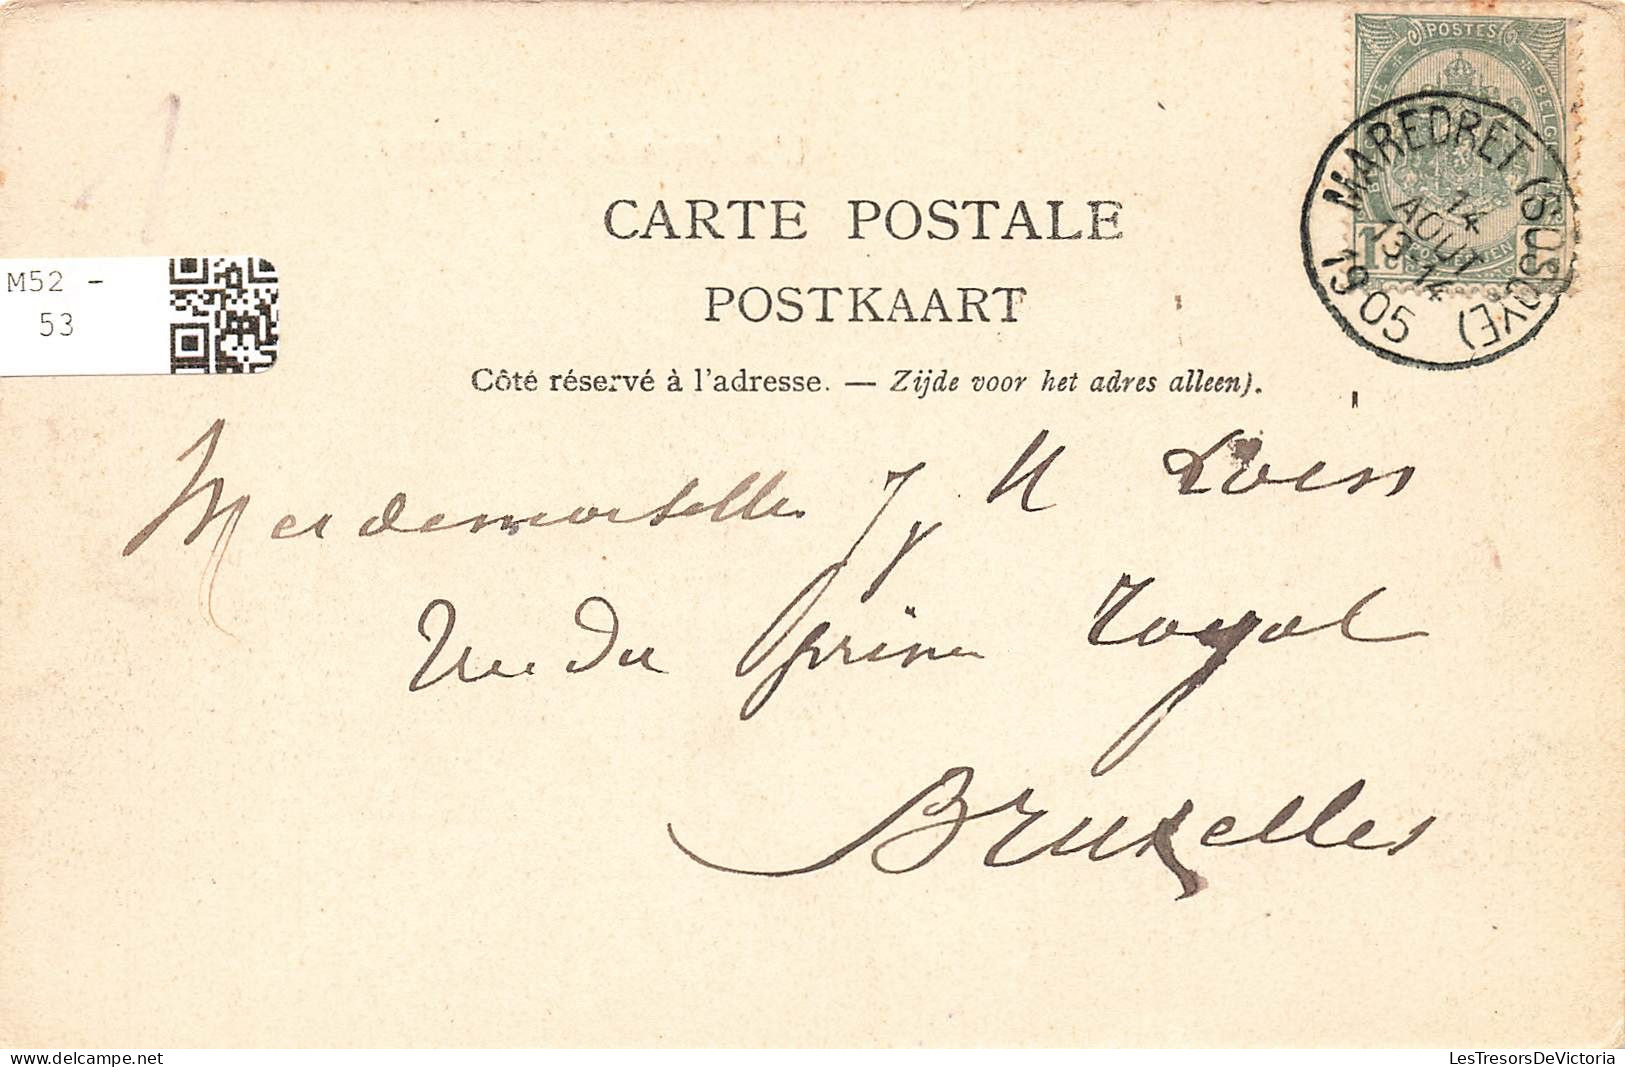 POSTES
BELGIQUE BELGIË
MAREDRET (SOSOYE)
14
AOUT
13-14
1905
CARTE POSTALE
POSTKAART
Côté réservé à l'adresse. — Zijde voor het adres alleen).
M52 -
53
Mademoiselle
rue du prince royal
Bruxelles
delcampe.net
LesTresorsDeVictoria